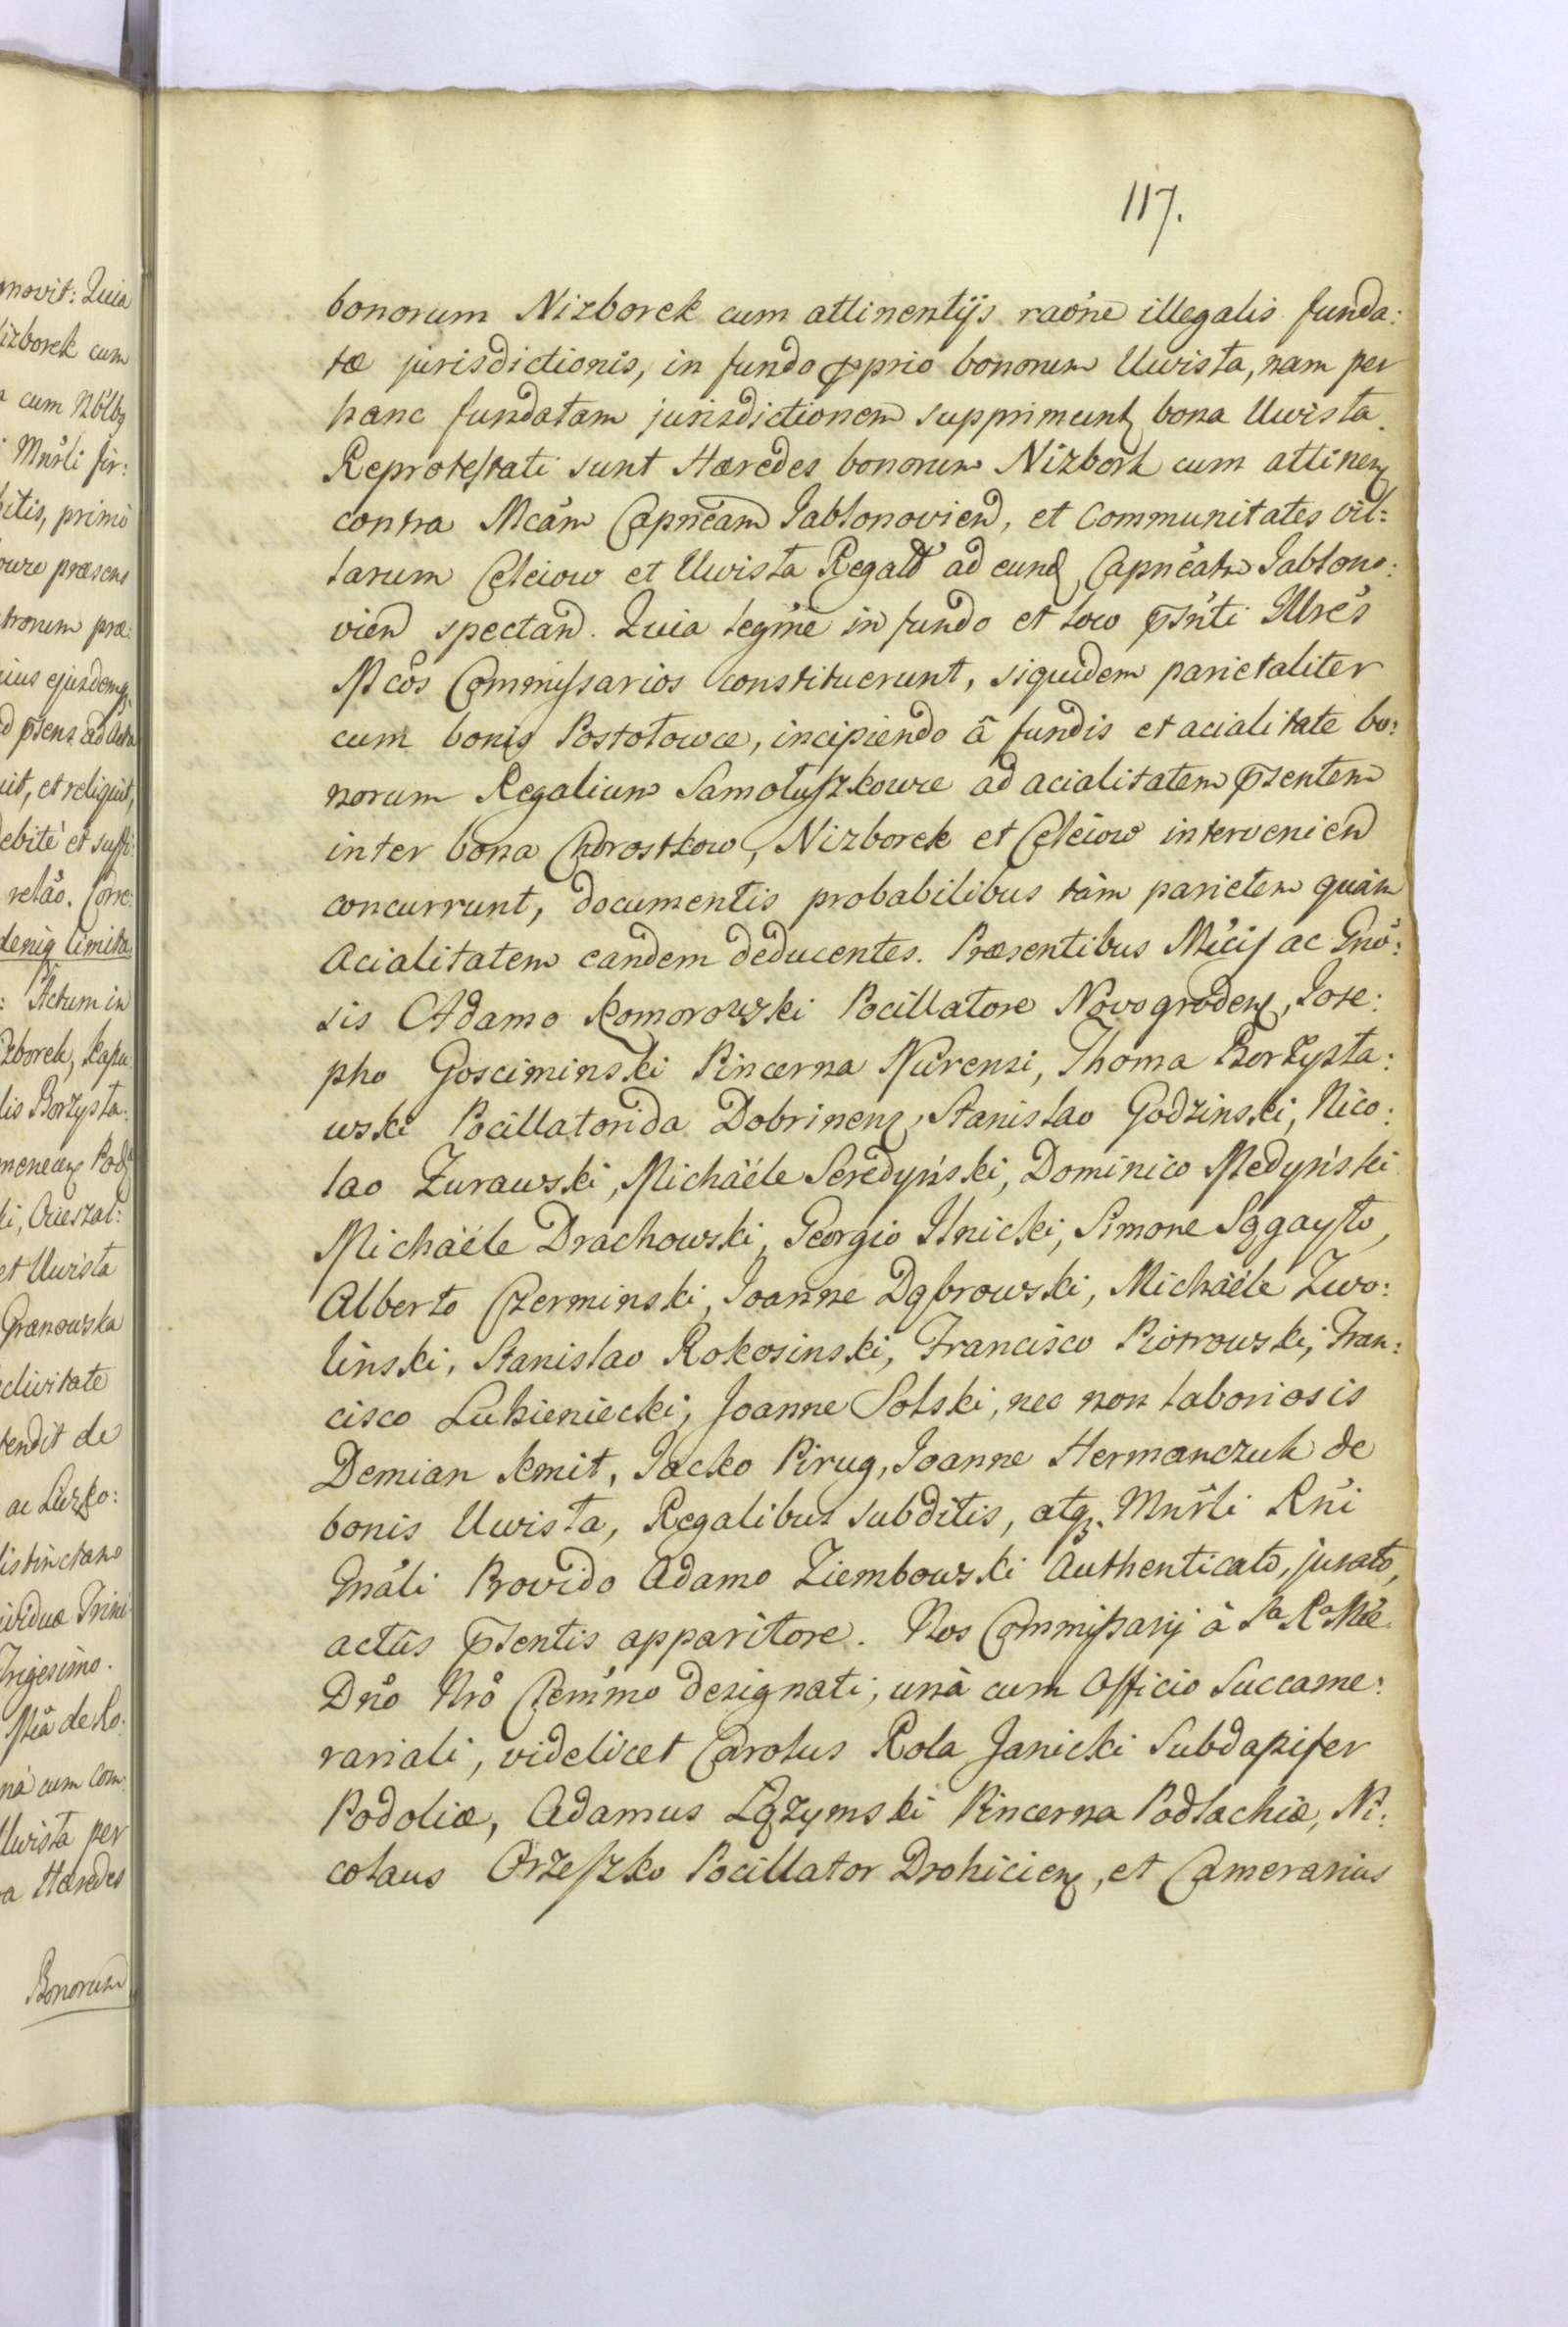 117.
bonorum Nizborek cum attinentijs raõne illegalis funda:
tæ jurisdictionis, in fundo ꝓprio bonorum Uwista, nam per
hanc fundatam jurisdictionem supprimunt bona Uwista.
Reprotestati sunt Hæredes bonorum Nizbork cum attinen
contra Mcám Capnéam Jabłonovien, et Communitates vil:
larum Celeiow et Uwista Regal ad eund Capneát Jabłono:
vien spectan. Quia legmé in fundo et loco pśnti Illrés
Mcos Commissarios constituerunt, siquidem parietaliter
cum bonis Postołowce, incipiendo â fundis et acialitate bo:
norum Regalium Samołuszkowce ad acialitatem psentem
inter bona Chorostkow, Nizborek et Celeiow intervenien
concurrunt, documentis probabilibus tàm parietem quàm
Acialitatem eandem deducentes. Præsentibus Mcis ac Gnó:
sis Adamo Komorowski Pocillatore Novogroden, Jose:
pho Gosciminski Pincerna Nurensi, Thoma Borzysła:
wski Pocillatorida Dobrinen, Stanislao Godzinski, Nico:
lao Zurawski, Michäéle Seredyński, Dominico Medyński
Michäéle Drachowski, Georgio Ilnicki, Simone Sągayło,
Alberto Czerminski, Joanne Dąbrowski, Michäéle Zwo:
linski, Stanislao Rokosinski, Francisco Piotrowski, Fran:
cisco Łukieniecki, Joanne Solski, nec non laboriosis
Demian Kmit, Jacko Pirug, Joanne Hermanczuk de
bonis Uwista, Regalibus subditis, atq. Mnśrli Rńi
Gnáli Provido Adamo Ziembowski Authenticato, jurato,
actûs psentis apparitore. Nos Commissarij â Sa Ra Mte
Dno Nro Clemmo designati, unà cum Officio Succame:
rariali, videlicet Carolus Rola Janicki Subdapifer
Podoliæ, Adamus Łązymski Pincerna Podlachiæ, Ni:
colaus Orzeszko Pocillator Drohicien, et Camerarius
movit: Quia
izborek cum
Mnśrli fir:
itis, primò
præsens
tronum præ:
ius ejusdemq.
psens ad Acta
it, et reliquit,
debitè et suffi:
relaõ. Corre:
deniq limita
Actum in
zborek, Kapu
lis Borzysła:
et Uwista
Granowska
clivitate
tendit de
istinctam
viduæ Trini
Trigesimo.
na cum Com:
Uwista per
a Hæredes
Bonorum